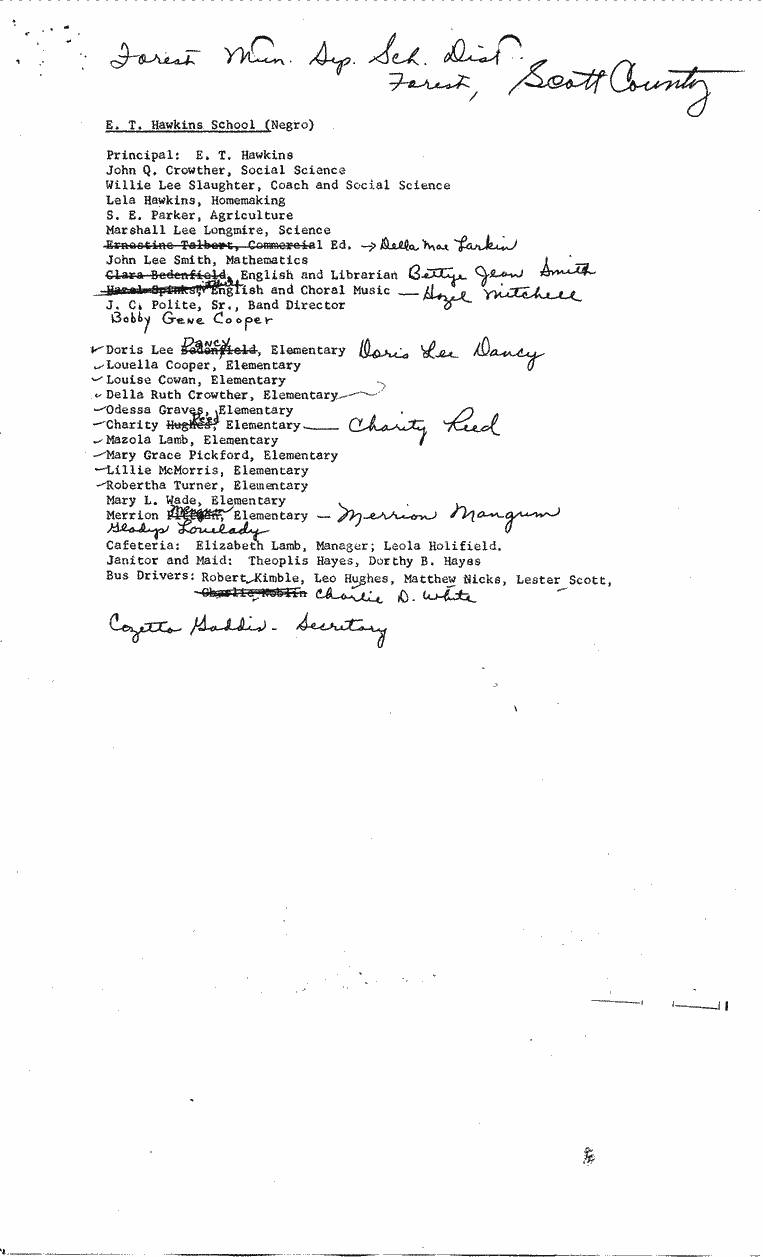 Forest Mun. Sep. Sch. Dist.
Forest, Scott County
E. T. Hawkins School (Negro)
Principal: E. T. Hawkins
John Q. Crowther, Social Science
Willie Lee Slaughter, Coach and Social Science
Lela Hawkins, Homemaking
S. E. Parker, Agriculture
Marshall Lee Longmire, Science
Ernestine Talbert, Commercial Ed. → Della Mae Larkin
John Lee Smith, Mathematics
Clara Bedenfield, English and Librarian Bettye Jean Smith
Hazel Spinks, English and Choral Music — Hazel Mitchell
J. C. Polite, Sr., Band Director
Bobby Gene Cooper
Doris Lee Bedenfield, Dancy Elementary Doris Lee Dancy
Louella Cooper, Elementary
Louise Cowan, Elementary
Della Ruth Crowther, Elementary
Odessa Graves, Elementary
Charity Hughes, Reed Elementary — Charity Reed
Mazola Lamb, Elementary
Mary Grace Pickford, Elementary
Lillie McMorris, Elementary
Robertha Turner, Elementary
Mary L. Wade, Elementary
Merrion Elementary — Merrion Mangum
Gladys Lovelady
Cafeteria: Elizabeth Lamb, Manager; Leola Holifield.
Janitor and Maid: Theoplis Hayes, Dorthy B. Hayes
Bus Drivers: Robert Kimble, Leo Hughes, Matthew Nicks, Lester Scott,
Charlie Noblin Charlie D. White
Cozetta Gaddis - Secretary